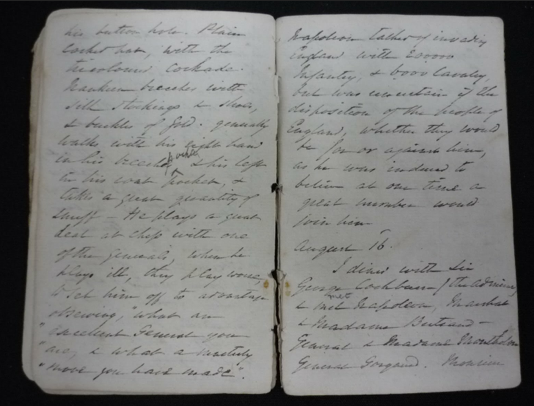 his button hole. Plain
cocked hat, with the
tricoloured cockade.
Nankeen breeches with
silk stockings & shoes,
& buckles of gold. generally
walks with his right hand
in his breeches pocket & his left
in his coat pocket, &
takes a great quantity of
snuff – He plays a great
deal at chess with one
of the generals, when he
plays ill, they play worse,
to set him off to advantage
observing, what an
"excellent General you
"are, & what a masterly
"move you have made".
Napoleon talked of invading
England with 20000
Infantry, & 6000 Cavalry,
but was uncertain of the
disposition of the people of
England, whether they would
be for or against him,
as he was induced to
believe at one time a
great number would
join him –
August 16.
I dined with Sir
George Cockburn (the admiral
& met Napoleon
& Madame Bertrand –
General & Madame Montholon
General Gorgaud.